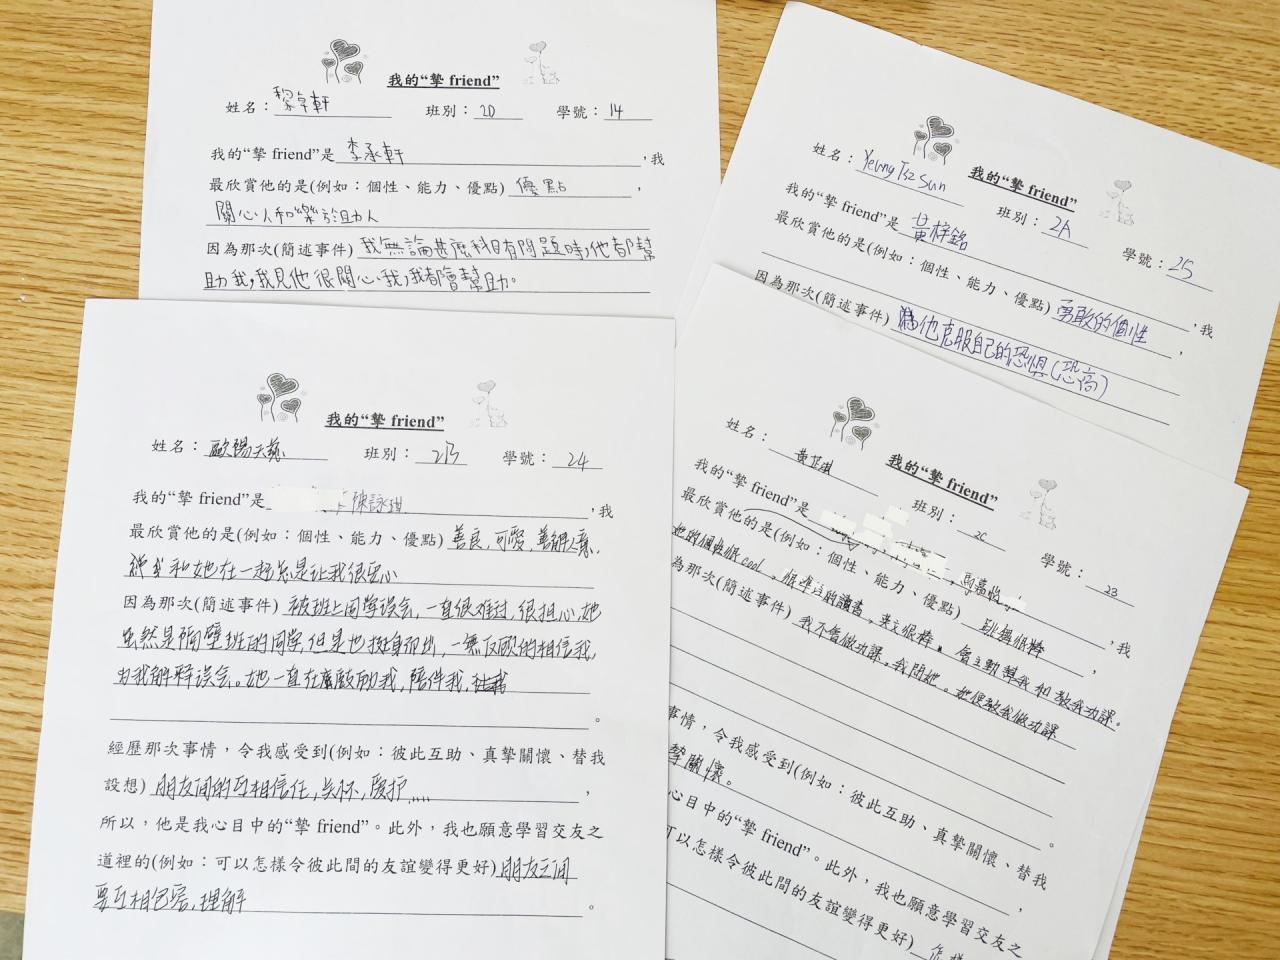 我的“摯 friend”
姓名：黎卓軒 班別：2D 學號：14
我的“摯 friend”是 李承軒 ，我
最欣賞他的是(例如：個性、能力、優點) 優點 ，
關心人和樂於助人
因為那次(簡述事件) 我無論甚麼科目有問題時，他都幫
助我，我見他很關心我，我都會幫助。
我的“摯 friend”
姓名：Yeung Tsz Sun 班別：2A 學號：25
我的“摯 friend”是 黃梓銘 ，我
最欣賞他的是(例如：個性、能力、優點) 勇敢的個性 ，
因為那次(簡述事件) 他克服自己的恐懼(恐高)
我的“摯 friend”
姓名：歐陽天藝 班別：2B 學號：24
我的“摯 friend”是 陳詠琪 ，我
最欣賞他的是(例如：個性、能力、優點) 善良，可愛，善解人意，
和她在一起总是让我很安心
因為那次(簡述事件) 被班上同学误会，一直很难过，很担心，她
虽然是隔壁班的同学，但是也挺身而出，一無反顾的相信我，
为我解释误会。她一直在鼓励我，陪伴我，
。
經歷那次事情，令我感受到(例如：彼此互助、真摯關懷、替我
設想) 朋友间的互相信任，关怀，爱护…… ，
所以，他是我心目中的“摯 friend”。此外，我也願意學習交友之
道裡的(例如：可以怎樣令彼此間的友誼變得更好) 朋友之间
要互相包容，理解 。
我的“摯 friend”
姓名：黃芷淇 班別：2C 學號：23
我的“摯 friend”是 ，我
最欣賞他的是(例如：個性、能力、優點) 跳繩很棒 ，
她的個性很cool，很專注的讀書，英文很棒，會主動幫我和教我功課。
為那次(簡述事件) 我不會做功課，我問她。她便教我做功課
。
事情，令我感受到(例如：彼此互助、真摯關懷、替我
摯關懷。 ，
心目中的“摯 friend”。此外，我也願意學習交友之
可以怎樣令彼此間的友誼變得更好) 怎樣